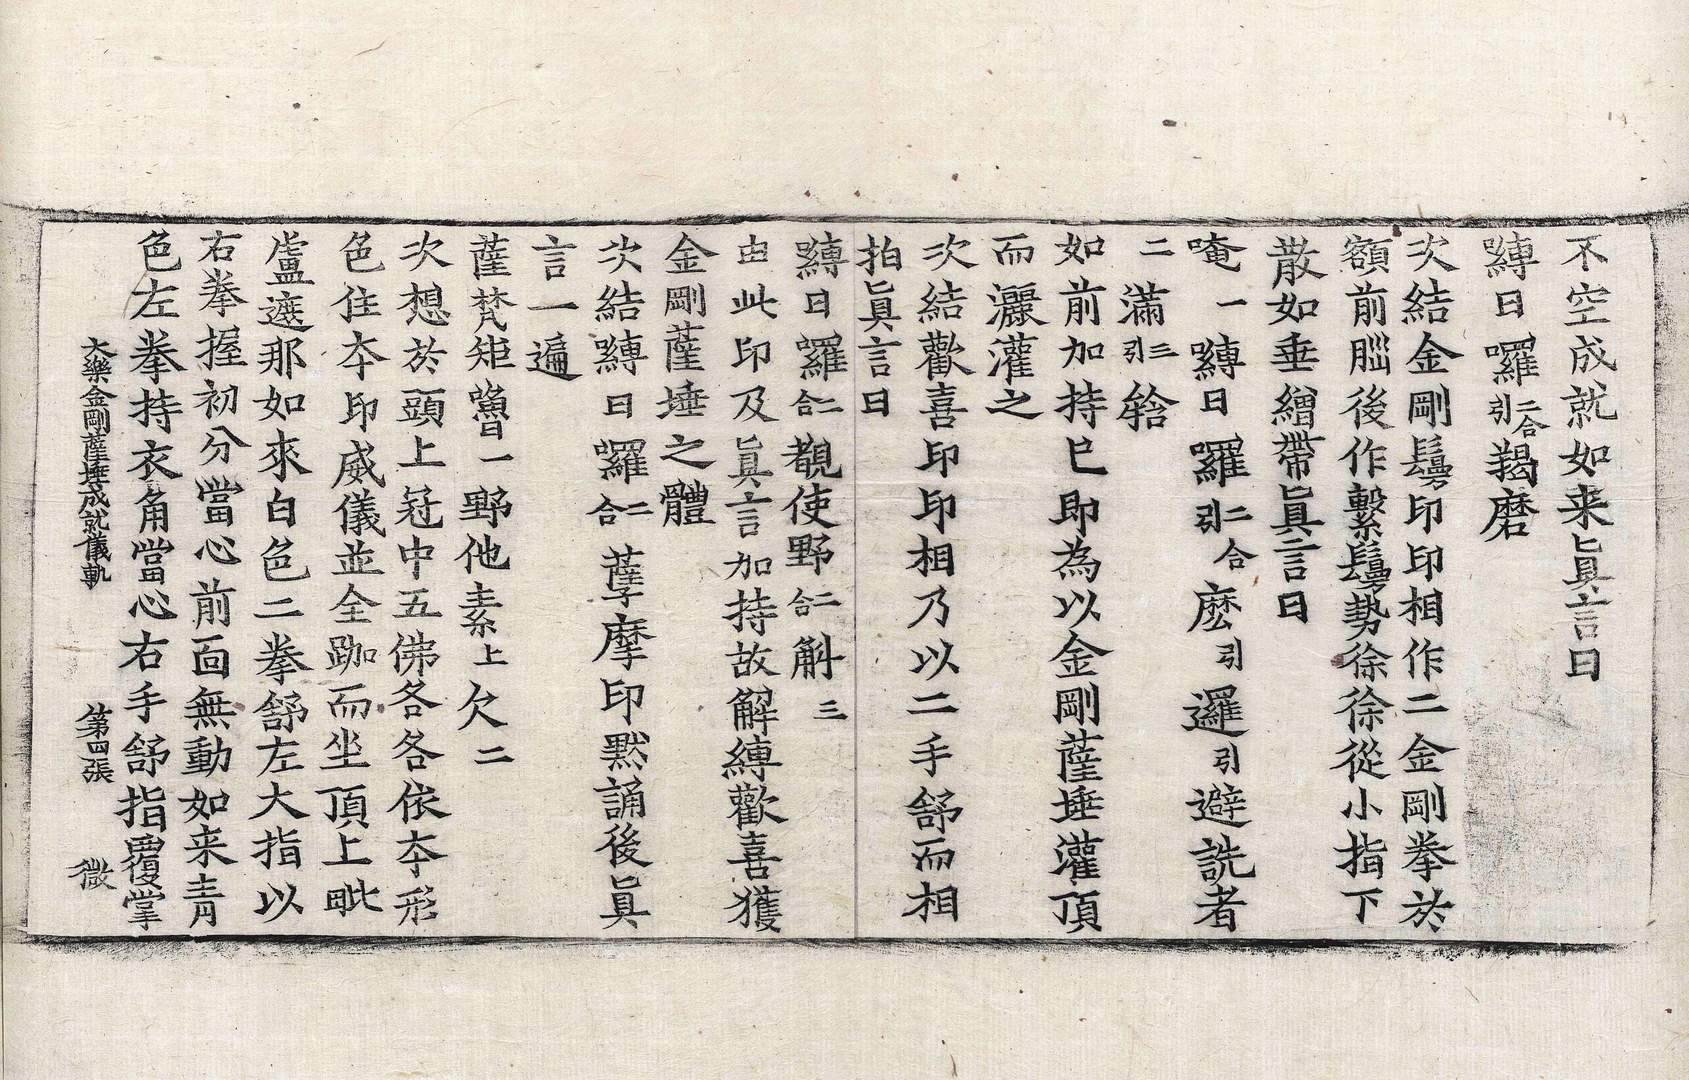 不空成就如来眞言曰
嚩日囉二合引羯磨
次結金剛鬘印印相作二金剛拳於
額前腦後作繫鬘勢徐徐從小指下
散如垂繒帶眞言曰
唵一嚩日囉引二合麽引邏引避詵者
二滿引三䤈
如前加持已即為以金剛薩埵灌頂
而灑灌之
次結歡喜印印相乃以二手舒而相
拍眞言曰
嚩日囉二合覩使野二合斛三
由此印及眞言加持故解縛歡喜獲
金剛薩埵之體
次結嚩日囉二合薩摩印黙誦後眞
言一遍
薩梵矩嚕一野他素上欠二
次想於頭上冠中五佛各各依本形
色住本印威儀並全跏而坐頂上毗
盧遮那如來白色二拳舒左大指以
右拳握初分當心前面無動如来青
色左拳持衣角當心右手舒指覆掌
大樂金剛薩埵成就儀軌 第四張 微